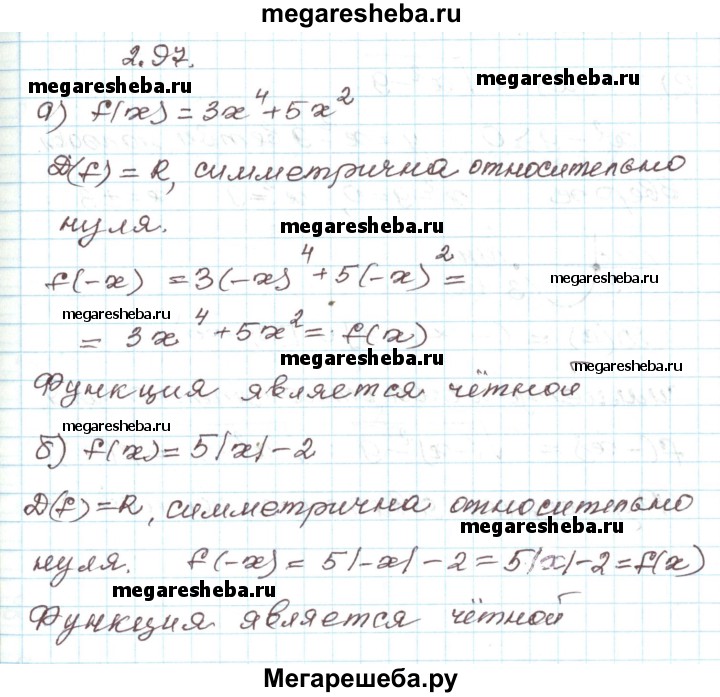 megaresheba.ru
2.97.
megaresheba.ru megaresheba.ru
а) f(x) = 3x⁴ + 5x²
D(f) = R, симметрична относительно
нуля. megaresheba.ru
f(-x) = 3(-x)⁴ + 5(-x)² = megaresheba.ru
megaresheba.ru
= 3x⁴ + 5x² = f(x)
megaresheba.ru megaresheba.ru
Функция является чётной
megaresheba.ru
б) f(x) = 5|x| - 2
D(f) = R, симметрична относительно
megaresheba.ru
нуля. f(-x) = 5|-x| - 2 = 5|x| - 2 = f(x)
megaresheba.ru megaresheba.ru
Функция является чётной
Мегарешеба.ру